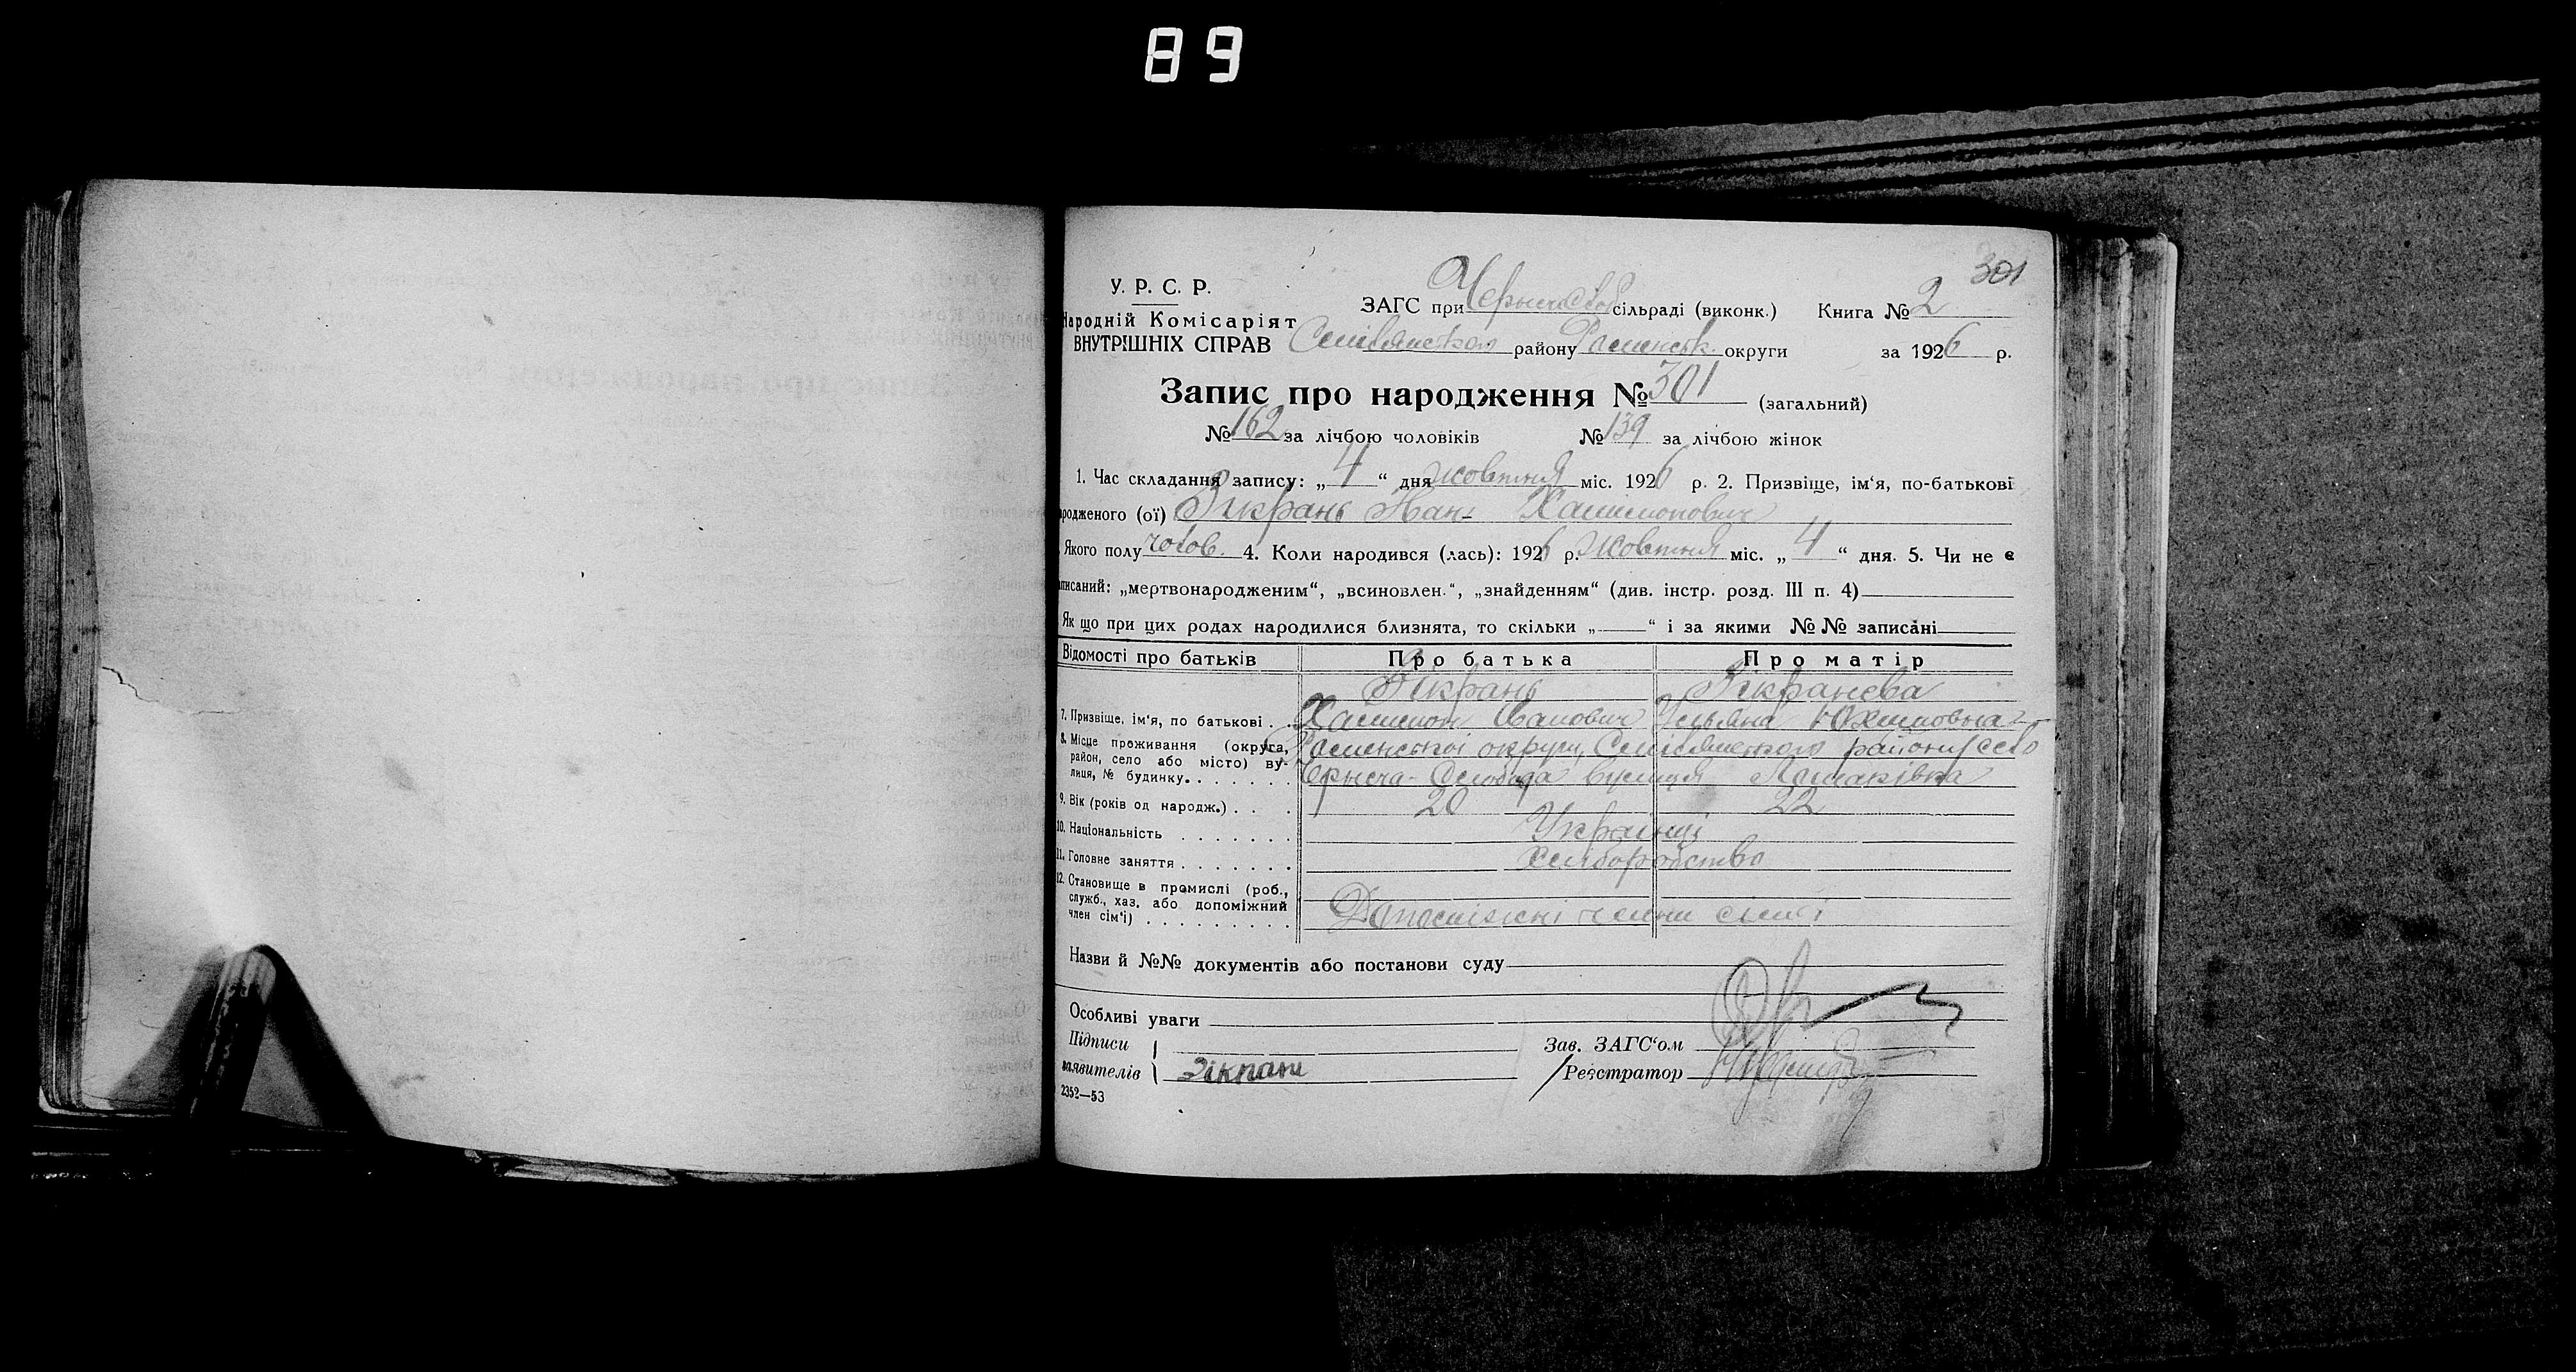 89
301
У. Р. С. Р.
Народній Комісаріят
ВНУТРІШНІХ СПРАВ
ЗАГС при сільраді (виконк.) Книга № 2
району Роменськ. округи за 1926 р.
Запис про народження № 301 (загальний)
№ 162 за лічбою чоловіків № 139 за лічбою жінок
1. Час складання запису: „ 4 “ дня жовтня міс. 1926 р. 2. Призвіще, ім‘я, по-батькові
родженого (ої) Зікрань Іван
Якого полу чолов. 4. Коли народився (лась): 1926 р. жовтня міс. „ 4 “ дня. 5. Чи не є
писаний: „мертвонародженим“, „всиновлен.“, „знайденням“ (див. інстр. розд. III п. 4)
Як що при цих родах народилися близнята, то скільки „ “ і за якими №№ записані
Відомості про батьків Про батька Про матір
Зікрань Зікранева
7. Призвіще, ім‘я, по батькові . . Іванович Уляна Юхимовна
8. Місце проживання (округа, Роменської округи, району село
район, село або місто) ву-
лиця, № будинку. . . . . . Слобода вулиця
9. Вік (років од народж.) . . . 20 22
10. Національність . . . . . . . Українці
11. Головне заняття . . . . . . . Хліборобство
12. Становище в промислі (роб.,
служб., хаз. або допоміжний
член сім‘ї) . . . . . . . . . Допоміжні члени сімї
Назви й №№ документів або постанови суду
Особливі уваги
Підписи
Зав. ЗАГС‘ом
заявителів Зікран
Реєстратор
2352—53